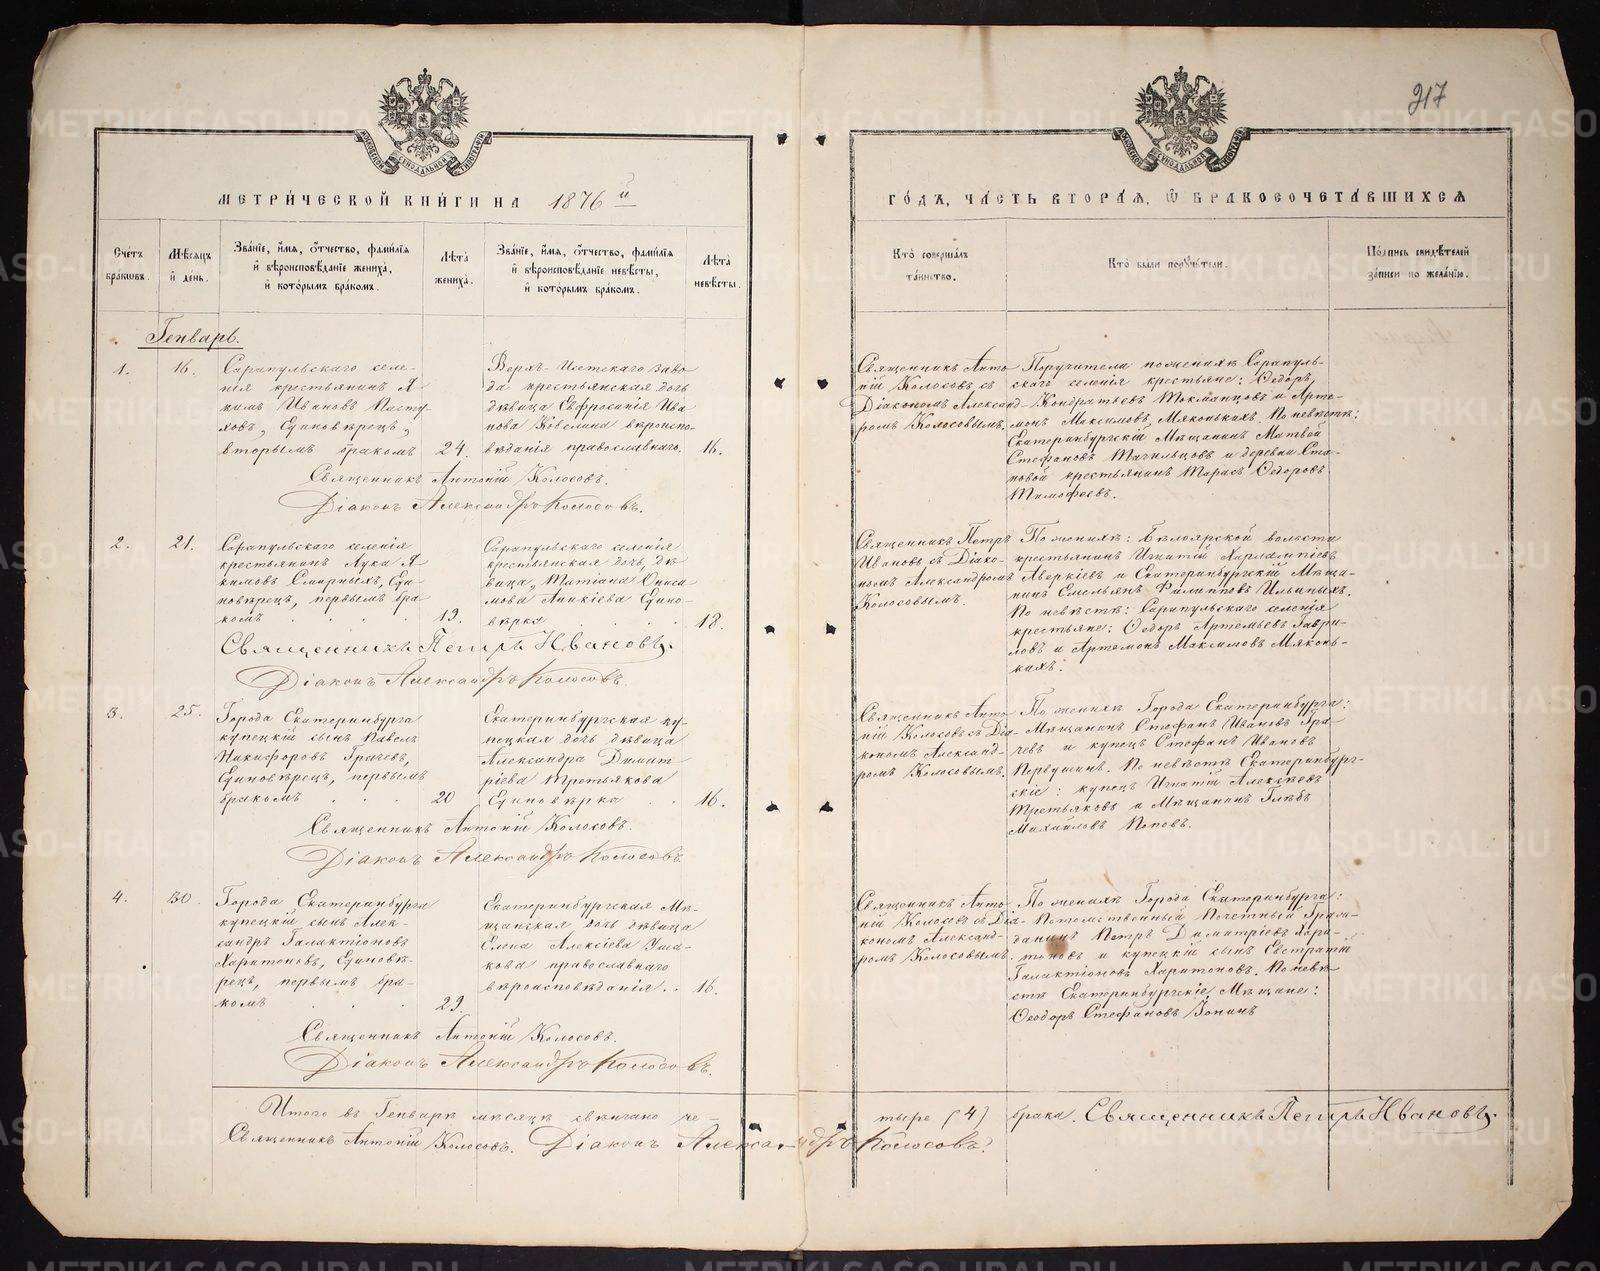 217
МЕТРИЧЕСКОЙ КНИГИ НА 1876 й
ГОДЪ, ЧАСТЬ ВТОРАЯ, Ѡ БРАКОСОЧЕТАВШИХСЯ
Счетъ браковъ.
Мѣсяцъ и день.
Званіе, имя, отчество, фамилія
и вѣроисповѣданіе жениха,
и которымъ бракомъ.
Лѣта
жениха.
Званіе, имя, отчество, фамилія
и вѣроисповѣданіе невѣсты,
и которымъ бракомъ.
Лѣта
невѣсты.
Кто совершалъ
таинство.
Кто были поручители.
Подпись свидѣтелей
записи по желанію.
Генварь.
1.
16.
Сарапульскаго селе-
нія крестьянинъ А
кимъ Ивановъ Пасту-
ховъ, Единовѣрецъ,
вторымъ бракомъ
24.
Верхъ-Исетскаго Заво
да крестьянская дочь
дѣвица Евфросинія Ива
нова Ковелина вѣроиспо-
вѣданія православнаго.
16.
Священникъ Антоній Колосовъ.
Діаконъ Александръ Колосовъ.
Священникъ Анто
ній Колосовъ съ
Діакономъ Александ-
ромъ Колосовымъ.
Поручители по женихѣ Сарапуль-
скаго селенія крестьяне: Ѳедоръ
Кондратьевъ Токманцовъ и Арте-
монъ Максимовъ Мяконькихъ. По невѣстѣ:
Екатеринбургскій Мѣщанинъ Матвей
Стефановъ Тагильцовъ и деревни Ста-
новой крестьянинъ Тарасъ Ѳедоровъ
Тимофеевъ.
2.
21.
Сарапульскаго селенія
крестьянинъ Лука А
кимовъ Смирныхъ, Еди
новѣрецъ, первымъ бра-
комъ
19.
Сарапульскаго селенія
крестьянская дочь, дѣ
вица, Татіана Ониси
мова Аникіева Едино-
вѣрка
18.
Священникъ Петръ Ивановъ.
Діаконъ Александръ Колосовъ.
Священникъ Петръ
Ивановъ съ Діако-
номъ Александромъ
Колосовымъ.
По женихѣ: Бѣлоярской волости
крестьянинъ Игнатій Харлампіевъ
Аверкіевъ и Екатеринбургскій Мѣща-
нинъ Емельянъ Филипповъ Ильиныхъ.
По невѣстѣ: Сарапульскаго селенія
крестьяне: Ѳедоръ Артемьевъ Гаври-
ловъ и Артемонъ Максимовъ Мяконь-
кихъ.
3.
25.
Города Екатеринбурга
купецкій сынъ Павелъ
Никифоровъ Грачевъ,
Единовѣрецъ, первымъ
бракомъ
20
Екатеринбургская ку-
пецкая дочь дѣвица
Александра Димит
ріева Третьякова
Единовѣрка
16.
Священникъ Антоній Колосовъ.
Діаконъ Александръ Колосовъ.
Священникъ Анто
ній Колосовъ съ Діа-
кономъ Александ-
ромъ Колосовымъ.
По женихѣ Города Екатеринбурга:
Мѣщанинъ Стефанъ Ивановъ Гра-
чевъ и купецъ Стефанъ Ивановъ
Первушинъ. По невѣстѣ Екатеринбург-
скіе: купецъ Игнатій Алексѣевъ
Третьяковъ и Мѣщанинъ Глѣбъ
Михайловъ Поповъ.
4.
30.
Города Екатеринбурга
купецкій сынъ Алек-
сандръ Галактіоновъ
Харитоновъ, Единовѣ-
рецъ, первымъ бра-
комъ
29.
Екатеринбургская Мѣ-
щанская дочь дѣвица
Елена Алексіева Уша-
кова православнаго
вѣроисповѣданія.
16.
Священникъ Антоній Колосовъ.
Діаконъ Александръ Колосовъ.
Священникъ Анто
ній Колосовъ съ Діа-
кономъ Александ-
ромъ Колосовымъ.
По женихѣ Города Екатеринбурга:
Потомственный Почетный Граж-
данинъ Петръ Димитріевъ Хари-
тоновъ и купецкій сынъ Евстратій
Галактіоновъ Харитоновъ. По невѣ
стѣ Екатеринбургскіе Мѣщане:
Ѳеодоръ Стефановъ Зопинъ
Итого въ Генварѣ мѣсяцѣ свѣнчано че-
тыре (4) брака. Священникъ Петръ Ивановъ.
Священникъ Антоній Колосовъ. Діаконъ Александръ Колосовъ.